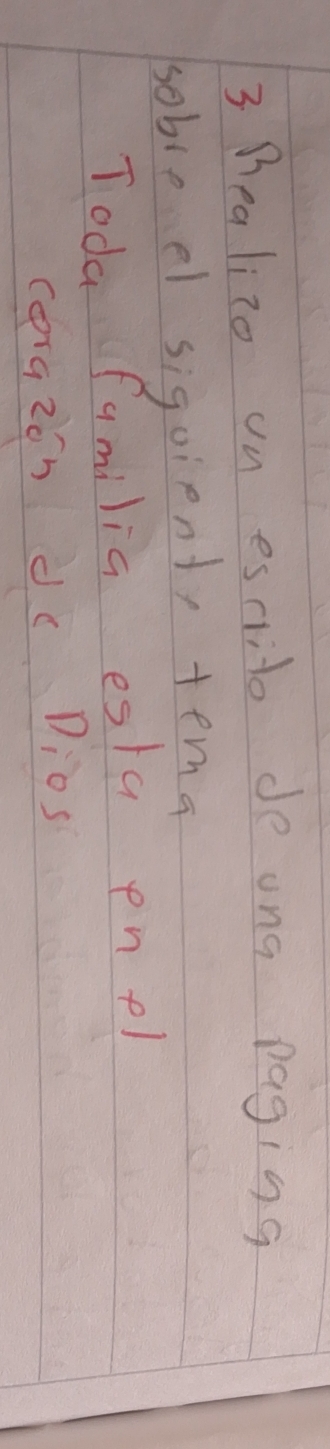 3 Realizo un escrito de una pagina
sobre el siguiente tema
Toda familia esta en el
corazón de Dios